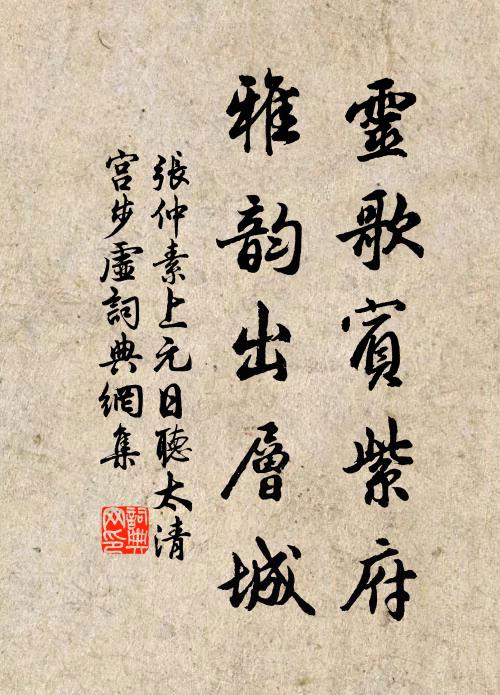 靈歌賓紫府
雅韵出層城
張仲素上元日聽太清
宮步虛詞典網集
詞典網印